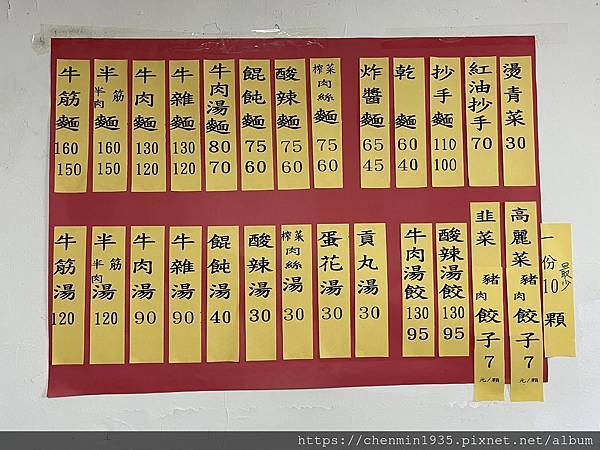 牛筋麵 160 150
半筋半肉麵 160 150
牛肉麵 130 120
牛雜麵 130 120
牛肉湯麵 80 70
餛飩麵 75 60
酸辣麵 75 60
榨菜肉絲麵 75 60
炸醬麵 65 45
乾麵 60 40
抄手麵 110 100
紅油抄手 70
燙青菜 30
牛筋湯 120
半筋半肉湯 120
牛肉湯 90
牛雜湯 90
餛飩湯 40
酸辣湯 30
榨菜肉絲湯 30
蛋花湯 30
貢丸湯 30
牛肉湯餃 130 95
酸辣湯餃 130 95
韭菜豬肉餃子 7 元/顆
高麗菜豬肉餃子 7 元/顆
一份最少10顆
https://chenmin1935.pixnet.net/album